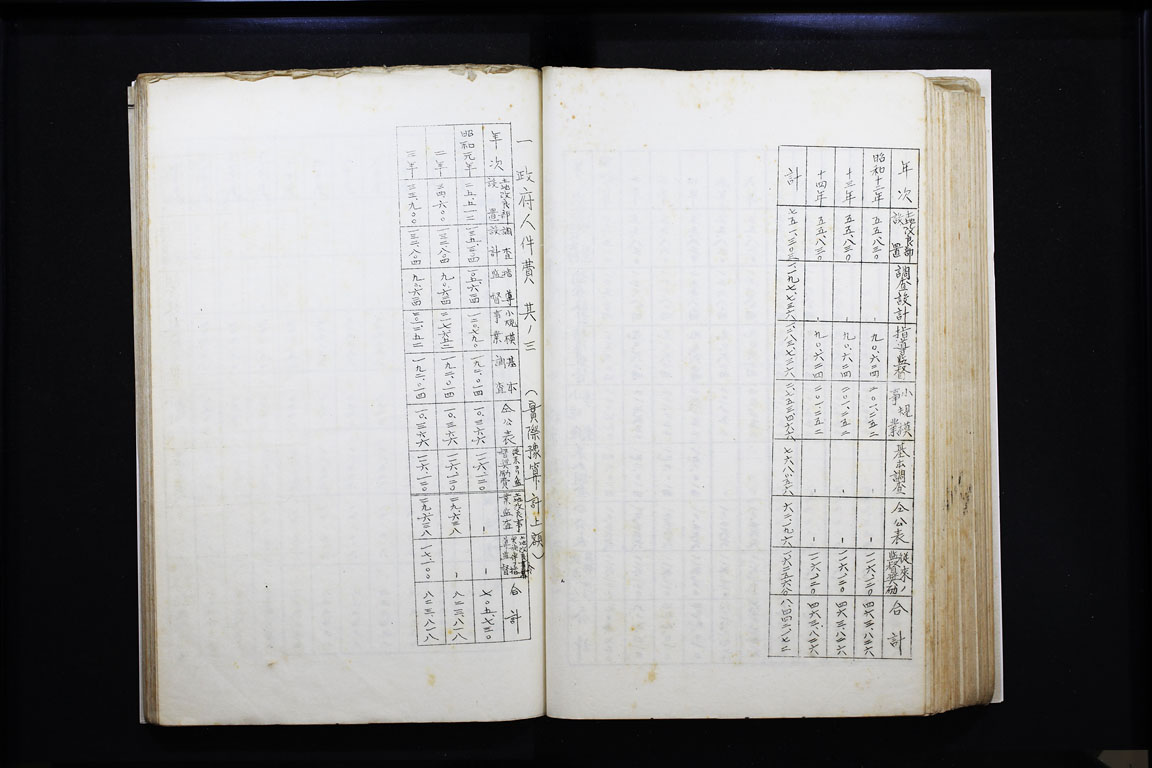 年次 土地改良部設置 調査設計 指導監督 小規模事業 基本調査 仝公表 従来ノ監督奨励 合計
昭和十二年 五五、八三〇 - 九〇、六二四 二〇一、二五二 - - 一一六、一二〇 四六三、八二六
十三年 五五、八三〇 - 九〇、六二四 二〇一、二五二 - - 一一六、一二〇 四六三、八二六
十四年 五五、八三〇 - 九〇、六二四 二〇一、二五二 - - 一一六、一二〇 四六三、八二六
計 一、一九七、七三六 八、四四二、一七二
一 政府人件費 其ノ三 （實際豫算計上額）
年次 土地改良部設置 調査設計 指導監督 小規模事業 基本調査 仝公表 従来ノ監督奨励費 土地改良事業監査 合計
昭和元年 二五、五一二 一三五、三〇四 一〇五、六二四 一二〇、七九〇 一九二、〇一四 一〇、三六六 一一六、一二〇 - - 七〇五、七三〇
二年 三四、六〇〇 一三二、八〇四 九〇、六二四 二一七、六五二 一九二、〇一四 一〇、三六六 一一六、一二〇 二九、六三八 - 八二三、八一八
三年 三三、九〇〇 一三二、八〇四 九〇、六二四 二〇一、二五二 一九二、〇一四 一〇、三六六 一一六、一二〇 二九、六三八 一六、一〇〇 八二二、八一八